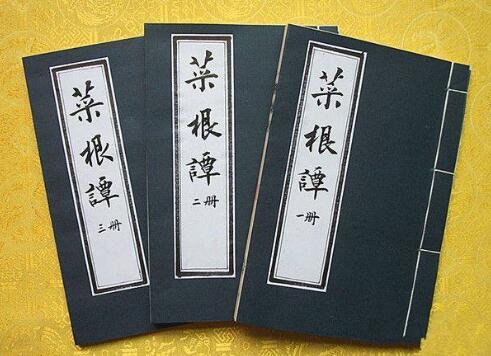 菜根譚
一册
菜根譚
二册
菜根譚
三册